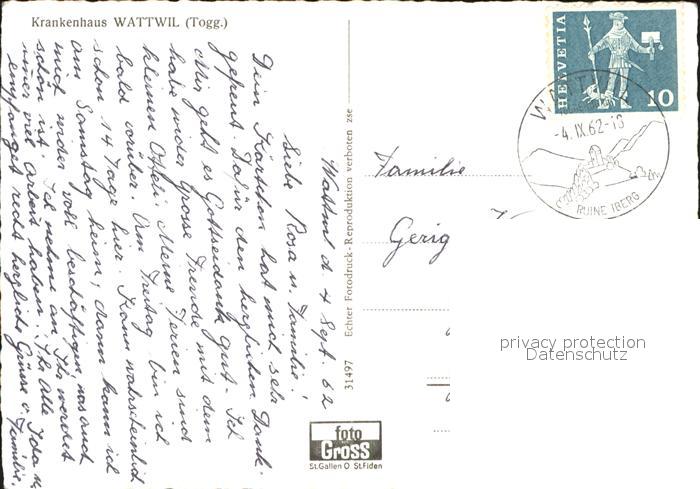 Krankenhaus WATTWIL (Togg.)
Wattwil d 4 Sept. 62
Liebe Rosa u. Familie!
Dein Kärtchen hat mich sehr
gefreut. Dafür den herzlichsten Dank.
Mir geht es Gottseidank gut. Ich
habe wider grosse Freude mit dem
kleinen Meine Ferien sind
bald vorüber. Am Freitag bin ich
schon 14 Tage hier. Kann wahrscheinlich
am Samstag heim, dann kann ich
mich wider voll beschäftigen, was auch
schön ist. Ich nehme an Ihr werdet
immer viel arbeit haben. Ihr alle
empfanget recht herzliche Grüsse v. Familie.
31497 Echter Fotodruck-Reproduktion verboten zse
foto
Gross
St.Gallen O St.Fiden
HELVETIA
10
WATTWIL
-4.IX.62-18
RUINE IBERG
Familie
Gerig
privacy protection
Datenschutz